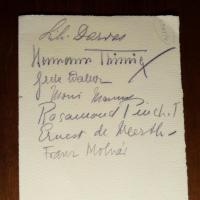 Lili Darvas
Hermann Thimig
Grete Walter
Moni Mann
Rosamond Pinchot
Ernest de Weerth
Franz Molnár